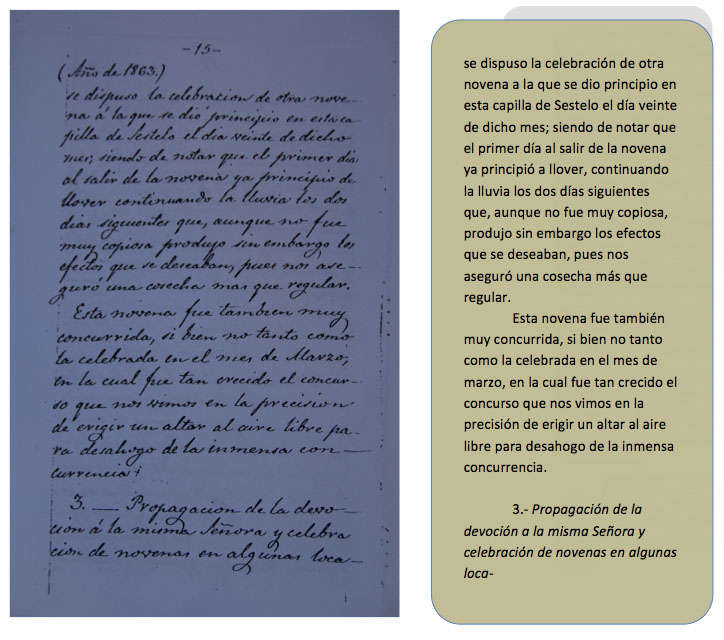 -15-
(Año de 1863.)
se dispuso la celebracion de otra nove-
na á la que se dió principio en esta ca-
pilla de Sestelo el dia veinte de dicho
mes, siendo de notar que el primer dia
al salir de la novena ya principio de
llover continuando la lluvia los dos
dias siguentes que, aunque no fue
muy copiosa produjo sin embargo los
efectos que se deseaban, pues nos ase-
guró una cosecha mas que regular.
Esta novena fue tambien muy
concurrida, si bien no tanto como
la celebrada en el mes de Marzo,
en la cual fue tan crecido el concur-
so que nos vimos en la precision
de erigir un altar al aire libre pa-
ra desahogo de la inmensa con-
currencia.
3. — Propagacion de la devo-
cion á la misma Señora y celebra
cion de novenas en algunas loca-
se dispuso la celebración de otra
novena a la que se dio principio en
esta capilla de Sestelo el día veinte
de dicho mes; siendo de notar que
el primer día al salir de la novena
ya principió a llover, continuando
la lluvia los dos días siguientes
que, aunque no fue muy copiosa,
produjo sin embargo los efectos
que se deseaban, pues nos
aseguró una cosecha más que
regular.
Esta novena fue también
muy concurrida, si bien no tanto
como la celebrada en el mes de
marzo, en la cual fue tan crecido el
concurso que nos vimos en la
precisión de erigir un altar al aire
libre para desahogo de la inmensa
concurrencia.
3.- Propagación de la
devoción a la misma Señora y
celebración de novenas en algunas
loca-